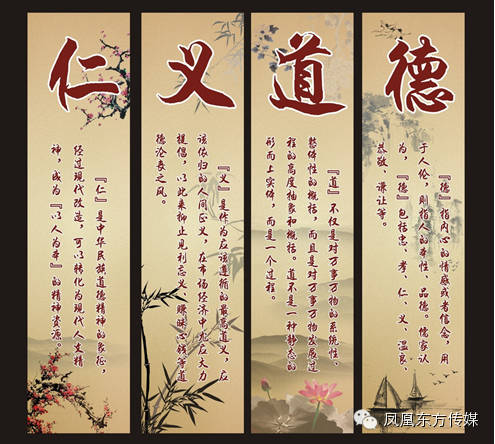 仁
『仁』是中华民族道德精神的象征，
经过现代改造，可以转化为现代人文精
神，成为『以人为本』的精神资源。
义
『义』是作为应该遵循的最高道义，应
该依归的人间正义，在市场经济中尤应大力
提倡，以此来抑止见利忘义、赚昧心钱等道
德沦丧之风。
道
『道』不仅是对万事万物的系统性、
整体性的概括，而且是对万事万物发展过
程的高度抽象和概括。道不是一种静态的
形而上实体，而是一个过程。
德
『德』指内心的情感或者信念，用
于人伦，则指人的本性、品德。儒家认
为，『德』包括忠、孝、仁、义、温良、
恭敬、谦让等。
凤凰东方传媒